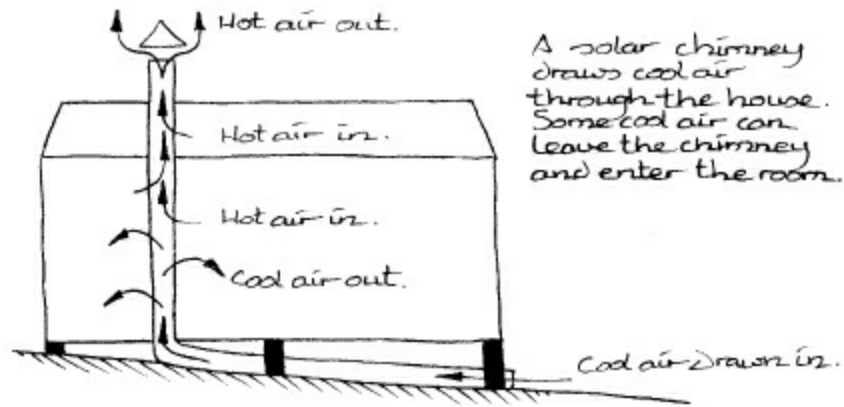 Hot air out.
A solar chimney
draws cool air
through the house.
Some cool air can
leave the chimney
and enter the room.
Hot air in.
Hot air in.
Cool air out.
Cool air drawn in.